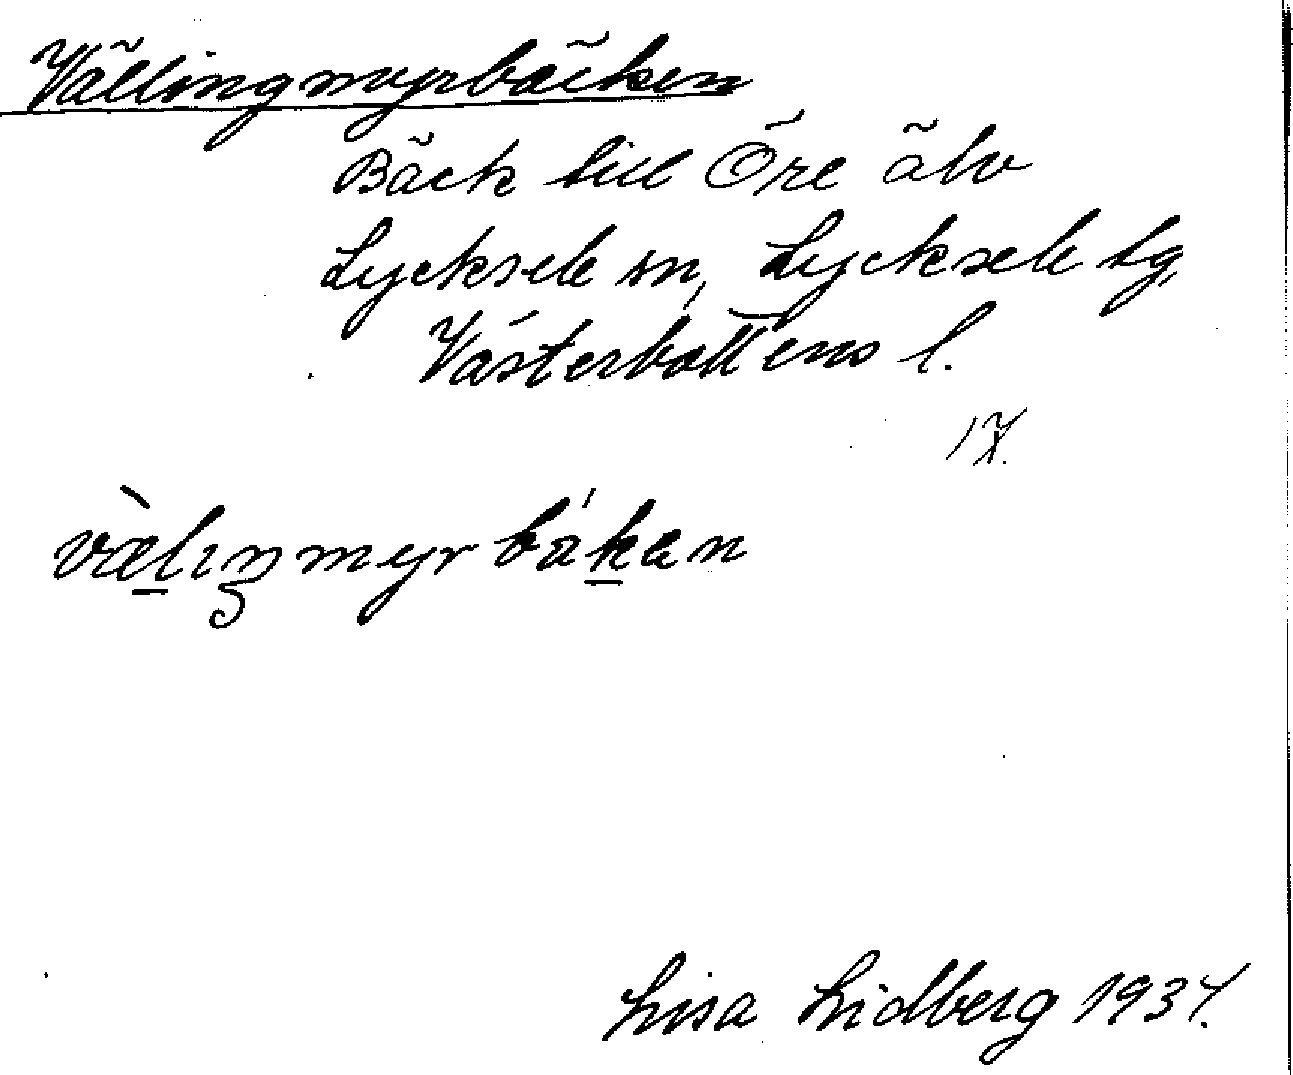 Vällingmyrbäcken
Bäck till Öre älv
Lycksele sn, Lycksele tg,
Västerbottens l.
17.
vælıŋmyrbäkan
Lisa Lidberg 1937.